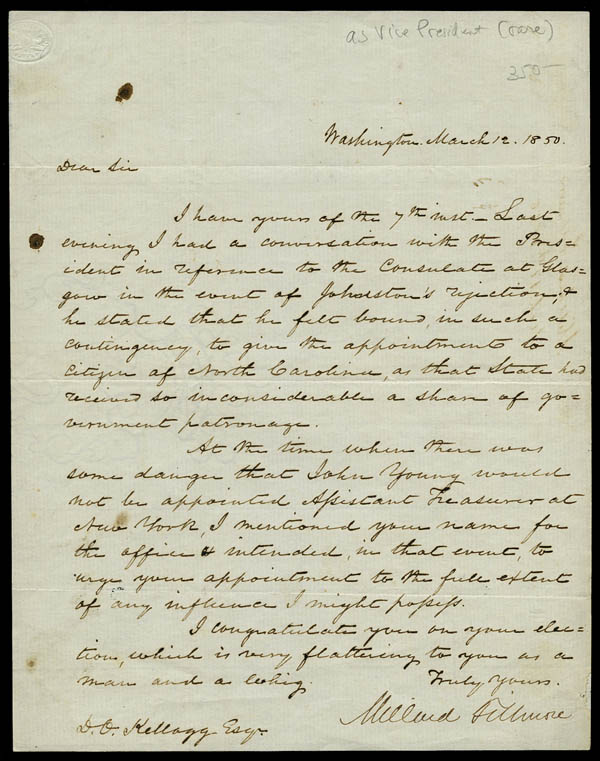 as Vice President (rare)
350-
Washington. March 12. 1850.
Dear Sir
I have yours of the 7th inst - Last
evening I had a conversation with the Pres=
ident in reference to the Consulate at Glas=
gow in the event of Johnston's rejection, &
he stated that he felt bound, in such a
contingency, to give the appointment to a
Citizen of North Carolina, as that State had
received so inconsiderable a share of go=
vernment patronage.
At the time when there was
some danger that John Young would
not be appointed Assistant Treasurer at
New York, I mentioned your name for
the office & intended, in that event, to
urge your appointment to the full extent
of any influence I might possess.
I congratulate you on your elec=
tion, which is very flattering to you as a
man and a Whig.
Truly Yours.
Millard Fillmore
D. O. Kellogg Esqr.